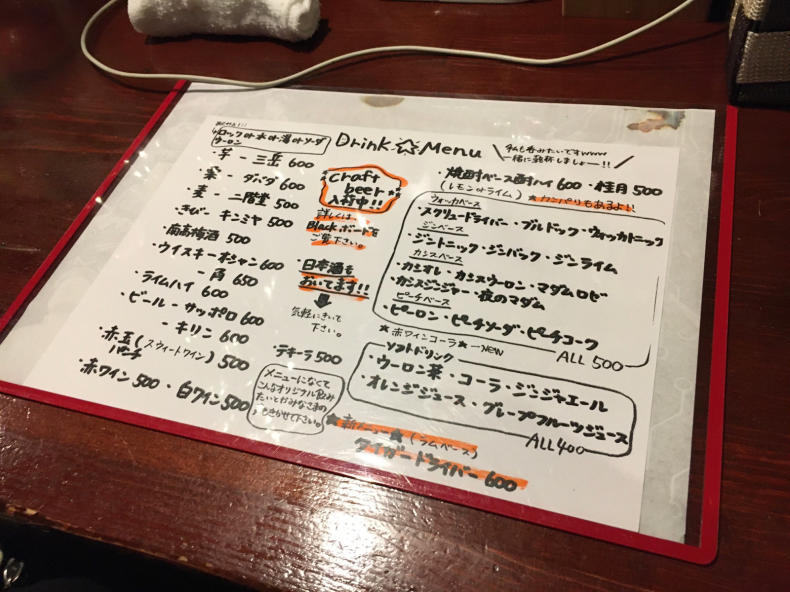 ロックor水or湯orソーダ
ウーロン
Drink☆Menu
私も呑みたいですwww
一緒に乾杯しましょー!!
・芋 - 三岳 600
・栗 - ダバダ 600
・麦 - 二階堂 500
・きび - キンミヤ 500
・南高梅酒 500
・ウイスキー - オーシャン 600
- 角 650
・ライムハイ 600
・ビール - サッポロ 600
- キリン 600
・赤玉(スウィートワイン) 500
パンチ
・赤ワイン 500 ・白ワイン 500
Craft
beer
入荷中!!
詳しくは
Blackボードを
ご覧下さい。
・日本酒も
おいてます!!
↓
気軽にきいて
下さい。
・テキーラ 500
メニューになくて
こんなオリジナル飲み
たいとかみなさまの
きかせて下さい。
・焼酎ベース酎ハイ 600 ・桂月 500
(レモンorライム) ★カンパリもあるよ!!
ウォッカベース
・スクリュードライバー・ブルドック・ウォッカトニック
ジンベース
・ジントニック・ジンバック・ジンライム
カシスベース
・カシオレ・カシスウーロン・マダムロビ
・カシスジンジャー・夜のマダム
ピーチベース
・ピーロン・ピーチソーダ・ピーチコーク
★赤ワインコーラ★ - NEW
ALL 500
ソフトドリンク
・ウーロン茶・コーラ・ジンジャエール
・オレンジジュース・グレープフルーツジュース
ALL 400
★新メニュー★(ラムベース)
タイガードライバー 600